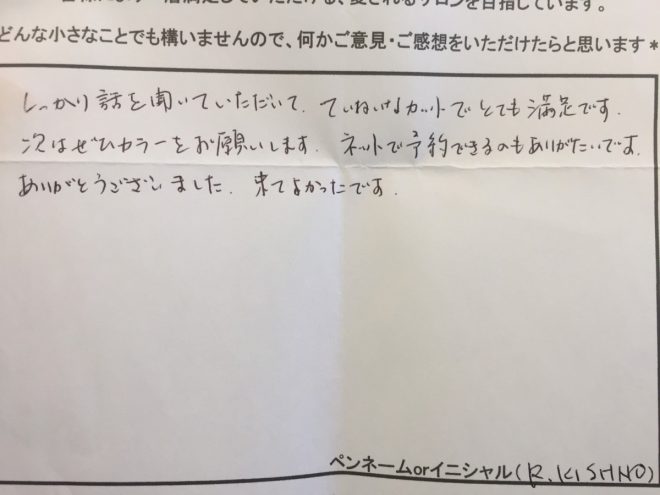 一層満足していただける、愛されるサロンを目指しています。
どんな小さなことでも構いませんので、何かご意見・ご感想をいただけたらと思います*
しっかり話を聞いていただいて、ていねいなカットでとても満足です。
次はぜひカラーをお願いします。ネットで予約できるのもありがたいです。
ありがとうございました。来てよかったです。
ペンネームorイニシャル(R.KISHNO)